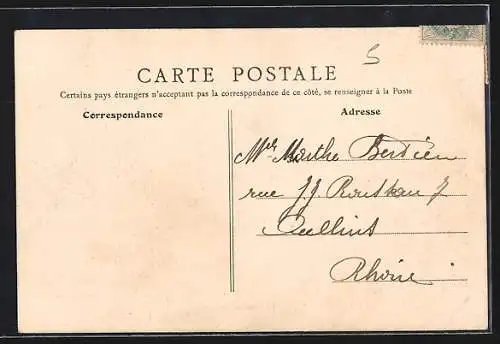 5
CARTE POSTALE
Certains pays étrangers n'acceptant pas la correspondance de ce côté, se renseigner à la Poste
Correspondance
Adresse
Melle Marthe Berdien
rue J. J. Rousseau 7
Oullins
Rhône